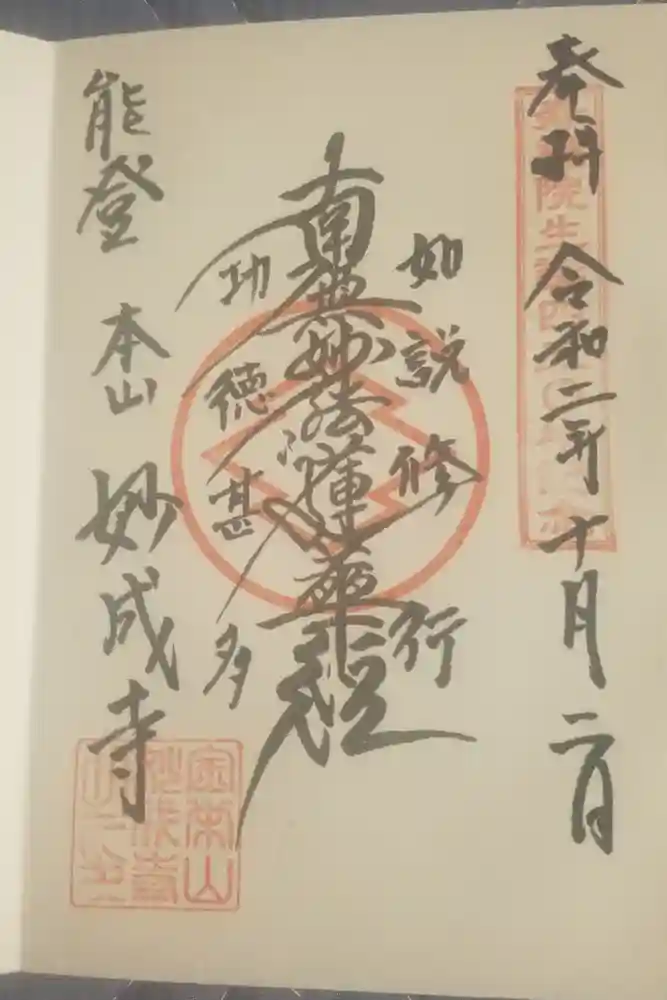 奉拝 令和二年十月二日
如説修行
南無妙法蓮華経
功徳甚多
能登 本山 妙成寺
金栄山